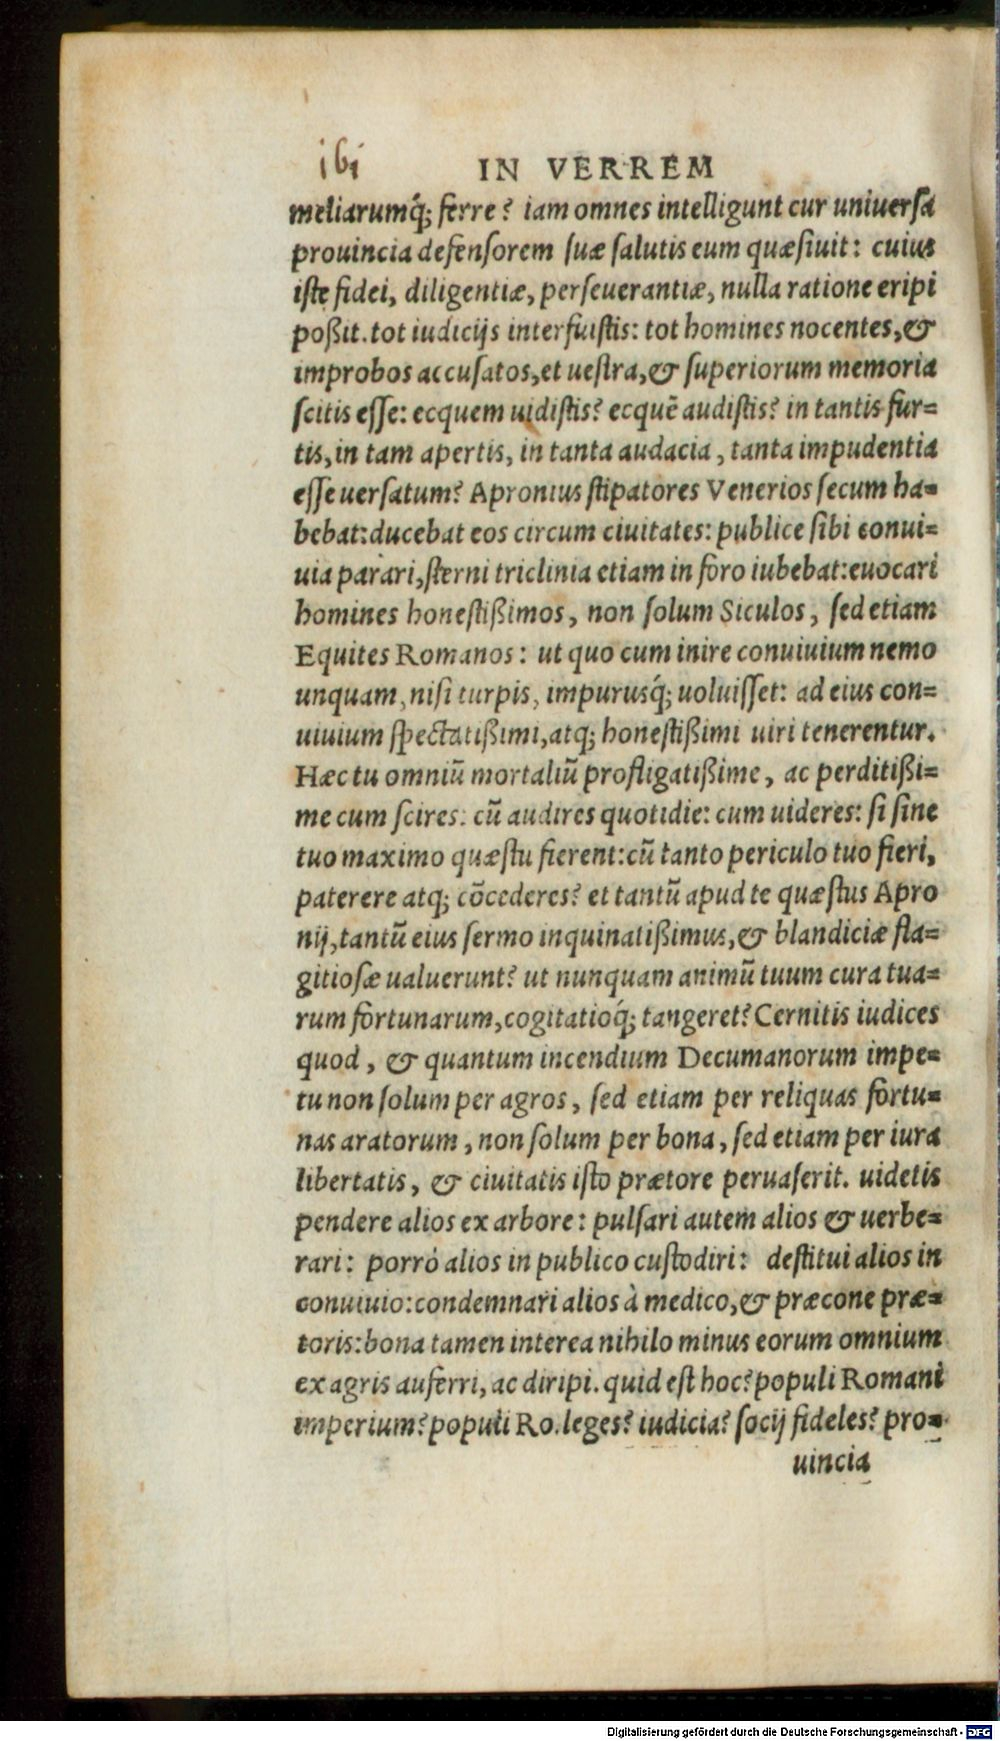 ibi
IN VERREM
meliarumq́; ferre? iam omnes intelligunt cur uniuersa
prouincia defensorem suæ salutis eum quæsiuit: cuius
iste fidei, diligentiæ, perseuerantiæ, nulla ratione eripi
poßit. tot iudicijs interfuistis: tot homines nocentes, &
improbos accusatos, et uestra, & superiorum memoria
scitis esse: ecquem uidistis? ecquē audistis? in tantis fur=
tis, in tam apertis, in tanta audacia, tanta impudentia
esse uersatum? Apronius stipatores Venerios secum ha=
bebat: ducebat eos circum ciuitates: publice sibi conui=
uia parari, sterni triclinia etiam in foro iubebat: euocari
homines honestißimos, non solum Siculos, sed etiam
Equites Romanos: ut quo cum inire conuiuium nemo
unquam, nisi turpis, impurusq́; uoluisset: ad eius con=
uiuium spectatißimi, atq; honestißimi uiri tenerentur.
Hæc tu omniū mortaliū profligatißime, ac perditißi=
me cum scires: cū audires quotidie: cum uideres: si sine
tuo maximo quæstu fierent: cū tanto periculo tuo fieri,
paterere atq; cōcederes? et tantū apud te quæstus Apro
nij, tantū eius sermo inquinatißimus, & blandiciæ fla=
gitiosæ ualuerunt? ut nunquam animū tuum cura tua=
rum fortunarum, cogitatioq́; tangeret? Cernitis iudices
quod, & quantum incendium Decumanorum impe=
tu non solum per agros, sed etiam per reliquas fortu=
nas aratorum, non solum per bona, sed etiam per iura
libertatis, & ciuitatis isto prætore peruaserit. uidetis
pendere alios ex arbore: pulsari autem alios & uerbe=
rari: porrò alios in publico custodiri: destitui alios in
conuiuio: condemnari alios à medico, & præcone præ=
toris: bona tamen interea nihilo minus eorum omnium
ex agris auferri, ac diripi. quid est hoc? populi Romani
imperium? populi Ro. leges? iudicia? socij fideles? pro=
uincia
Digitalisierung gefördert durch die Deutsche Forschungsgemeinschaft - DFG